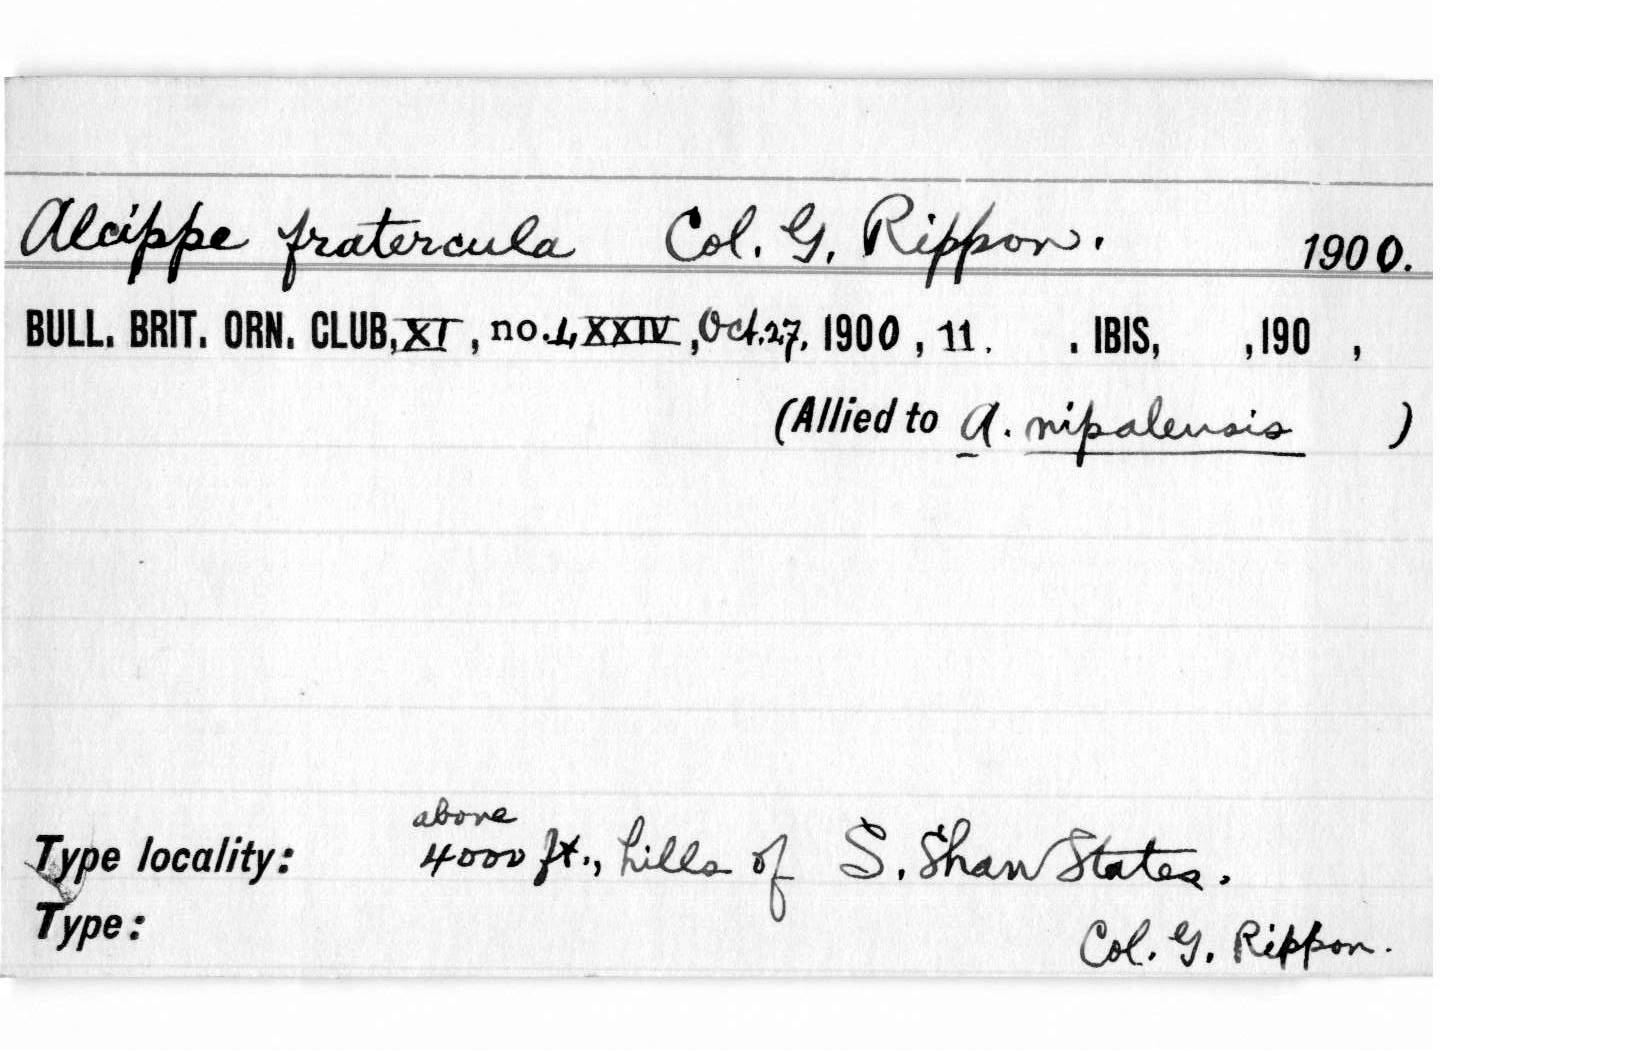 Alcippe fratercula Col. G. Rippon. 1900.
BULL. BRIT. ORN. CLUB, XI, no. LXXIV, Oct. 27, 1900, 11. . IBIS, ,190 ,
(Allied to A. nipalensis )
above
Type locality: 4000 ft., hills of S. Shan States.
Type:
Col. G. Rippon.